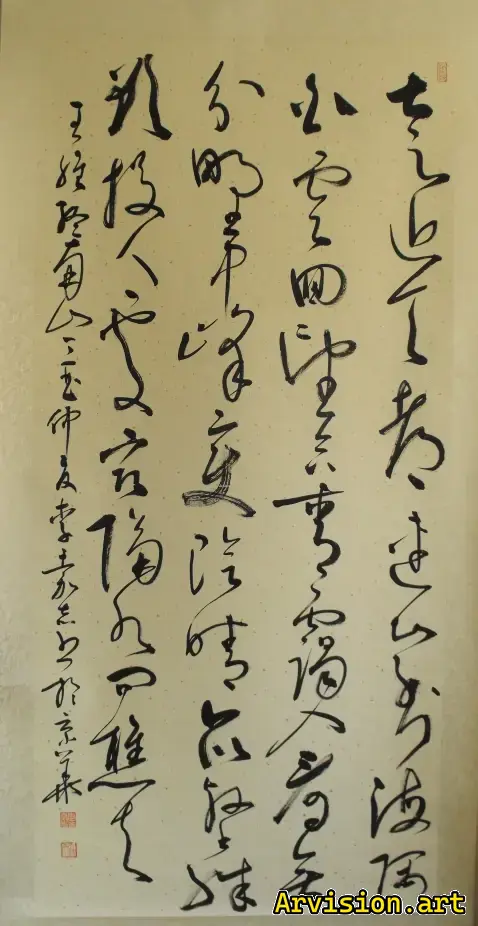 太乙近天都連山到海隅
白雲回望合青靄入看無
分野中峰變陰晴衆壑殊
欲投人處宿隔水問樵夫
王維終南山 仲夏李嘉志書於京華
Arvision.art